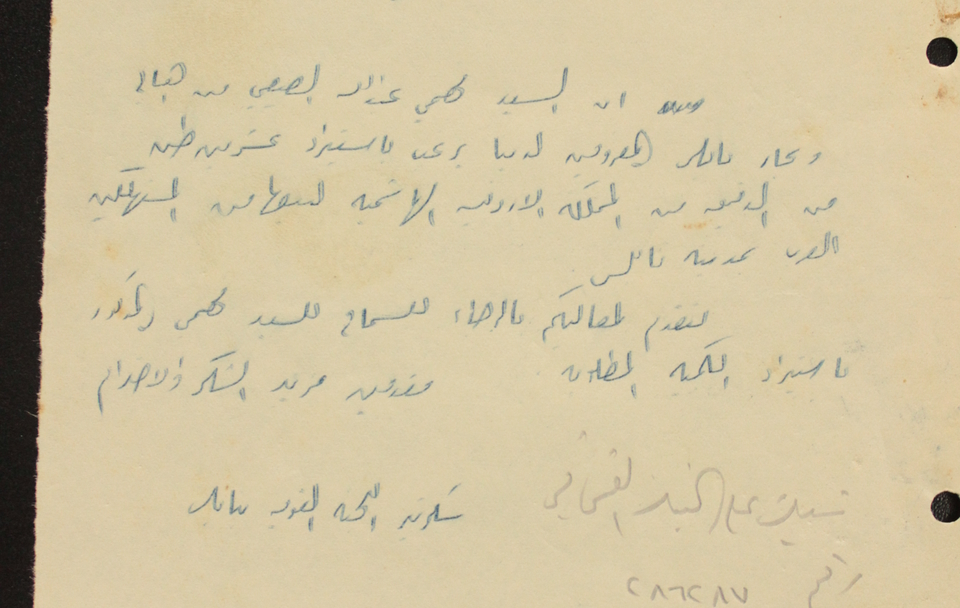 ان السيد فهمي عبدالله الصيفي من
وتجار نابلس المعروفين لدينا يرغب باستيراد عشرين طن
من الدقيق من المملكة الاردنية الهاشمية لبيعها من المستهلكين
العرب بمدينة نابلس
نتقدم لمعاليكم بالرجاء للسماح للسيد فهمي المذكور
باستيراد الكمية المطلوبة مقدمين مزيد الشكر والاحترام
سكرتير اللجنة القومية بنابلس
رقم ٢٨٦٢٨٧